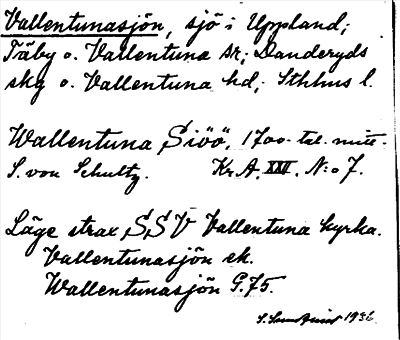 Vallentunasjön, sjö i Uppland;
Täby o. Vallentuna sr; Danderyds
skg o. Vallentuna hd; Sthlms l.
Wallentuna Siöö, 1700-tal. mitt.
S. von Schultz. Kr. A. XXV. N:o 7.
Läge strax SSV Vallentuna kyrka.
Vallentunasjön ek.
Wallentunasjön G. 75.
1936